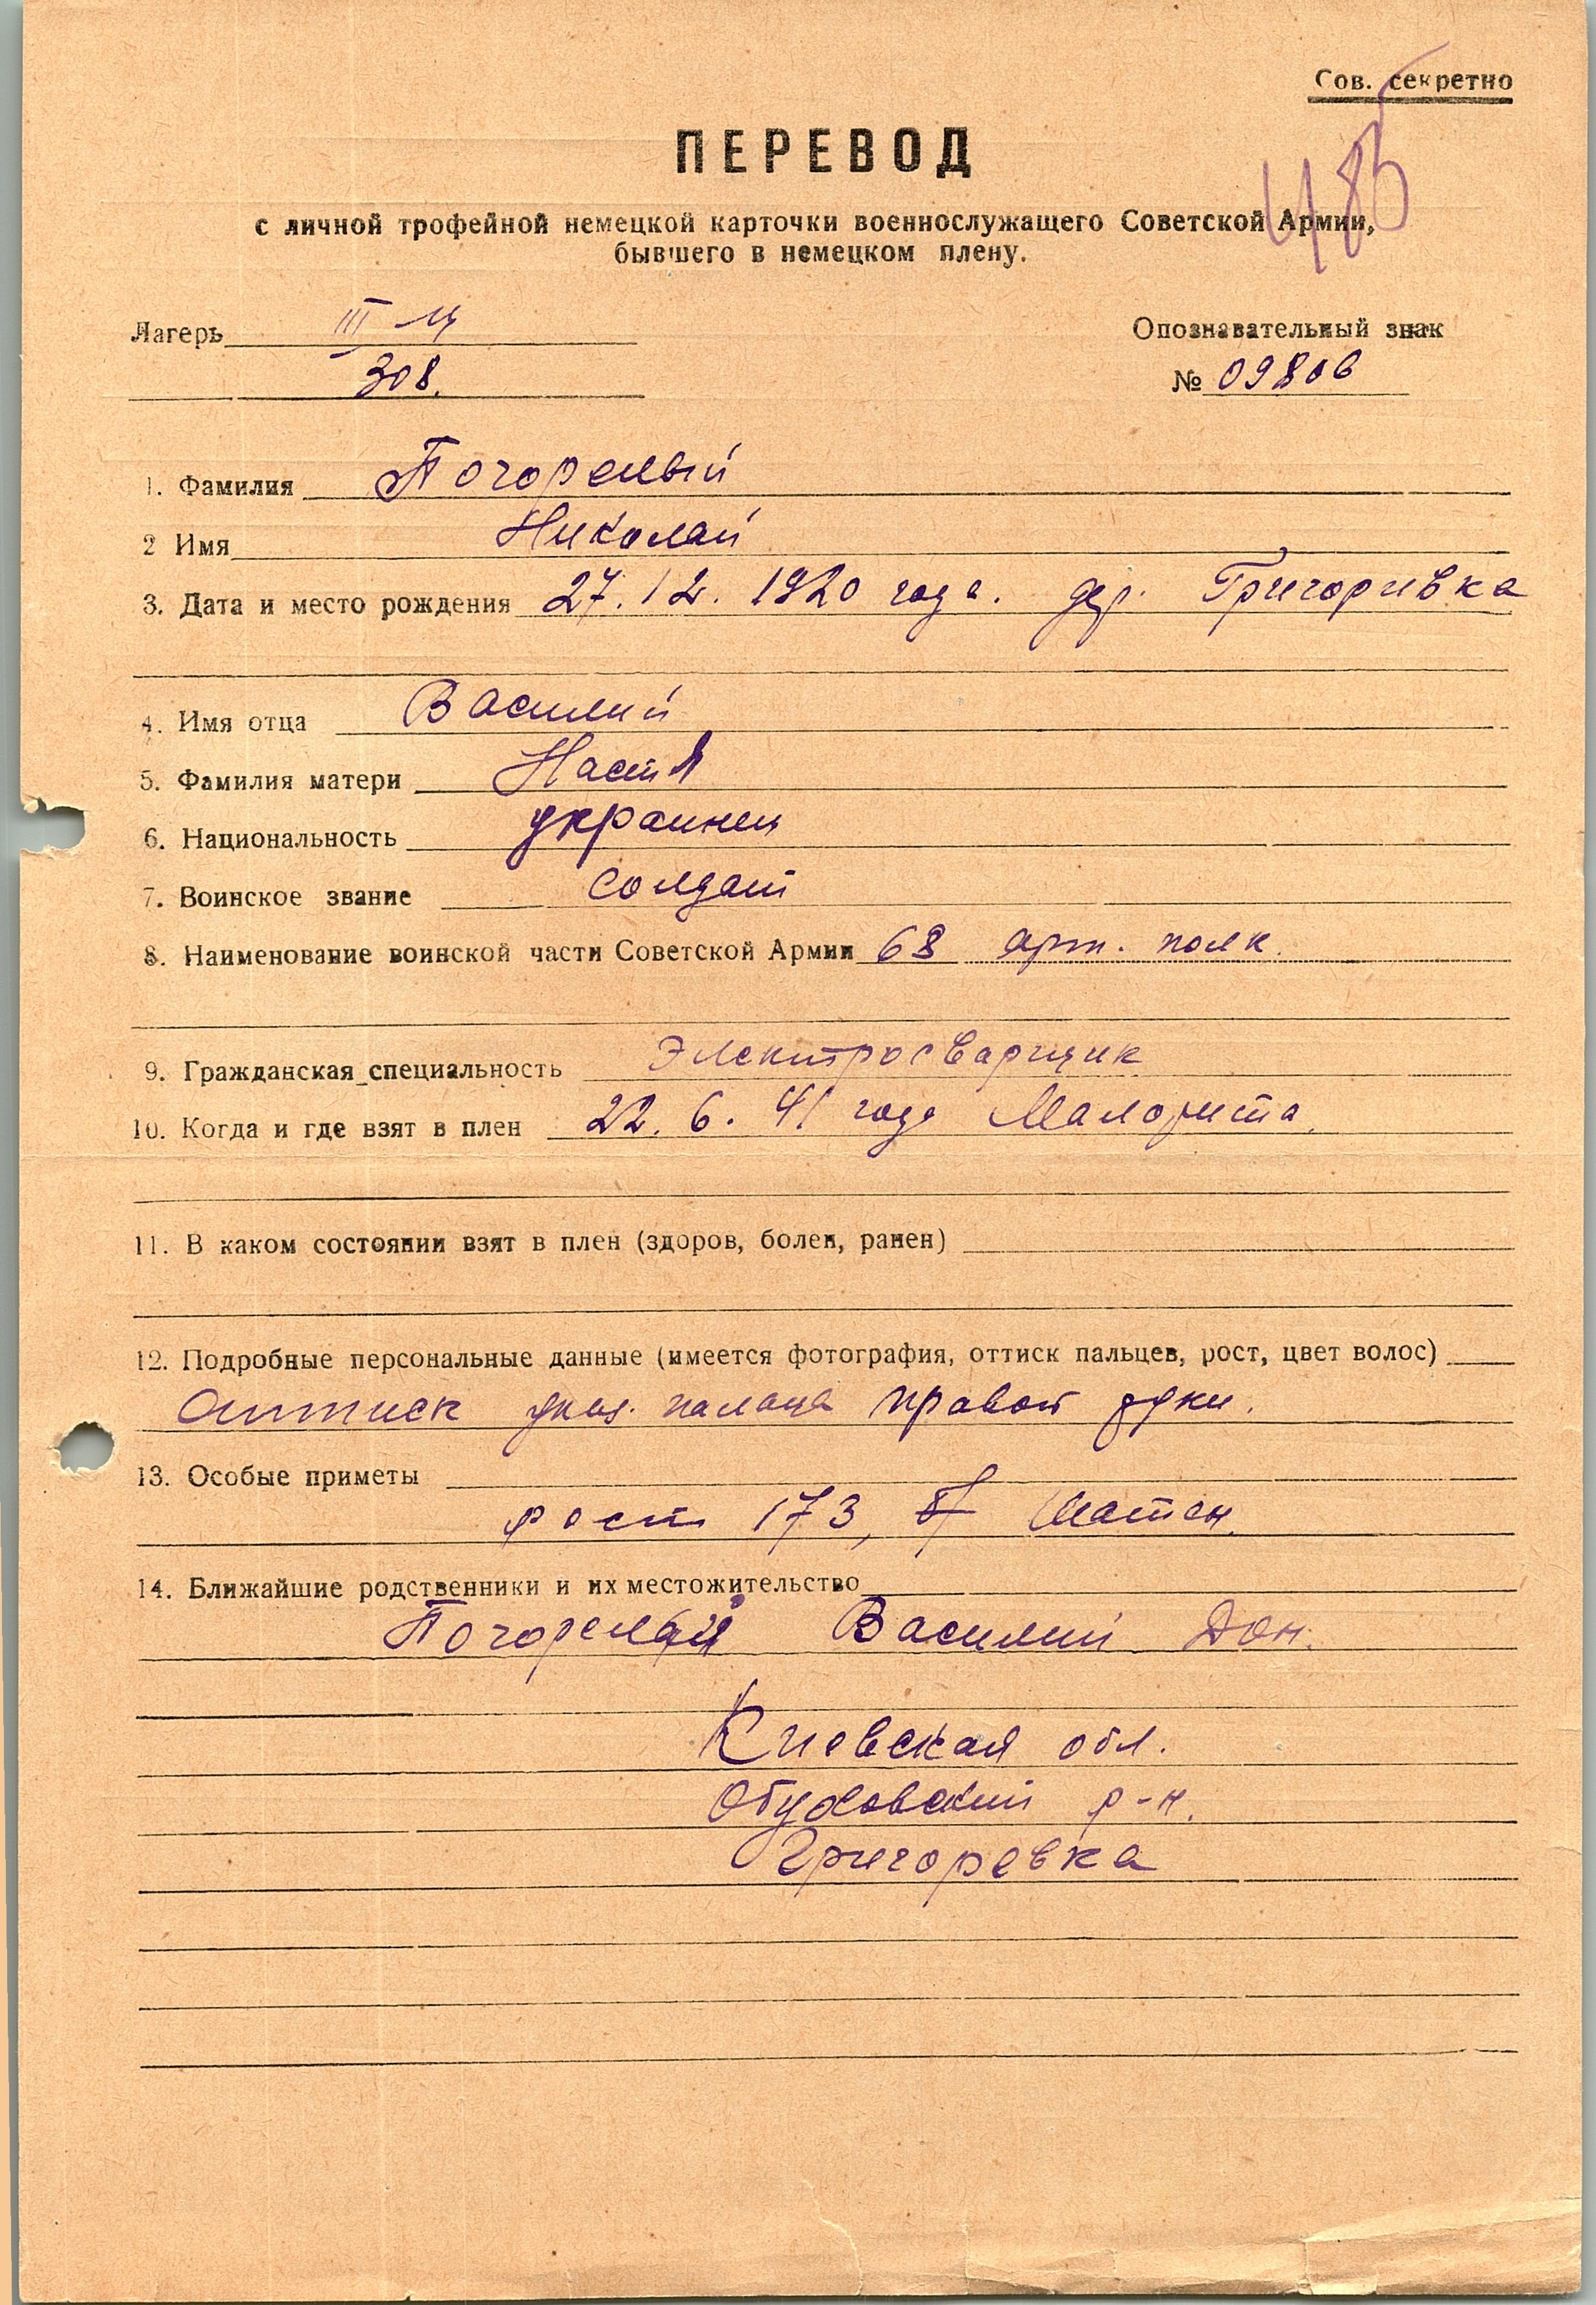 Сов. секретно
485
ПЕРЕВОД
с личной трофейной немецкой карточки военнослужащего Советской Армии,
бывшего в немецком плену.
Лагерь III
308.
Опознавательный знак
№ 09806
1. Фамилия Погорелый
2 Имя Николай
3. Дата и место рождения 27.12.1920 года. дер. Григоривка
4. Имя отца Василий
5. Фамилия матери Настя
6. Национальность украинец
7. Воинское звание солдат
8. Наименование воинской части Советской Армии 68 арт. полк.
9. Гражданская специальность Электросварщик
10. Когда и где взят в плен 22.6.41 года Малорита.
11. В каком состоянии взят в плен (здоров, болен, ранен)
12. Подробные персональные данные (имеется фотография, оттиск пальцев, рост, цвет волос)
Оттиск указ. пальца правой руки.
13. Особые приметы
рост 173, шатен.
14. Ближайшие родственники и их местожительство
Погорелый Василий Дон.
Киевская обл.
Обуховский р-н.
Григоревка